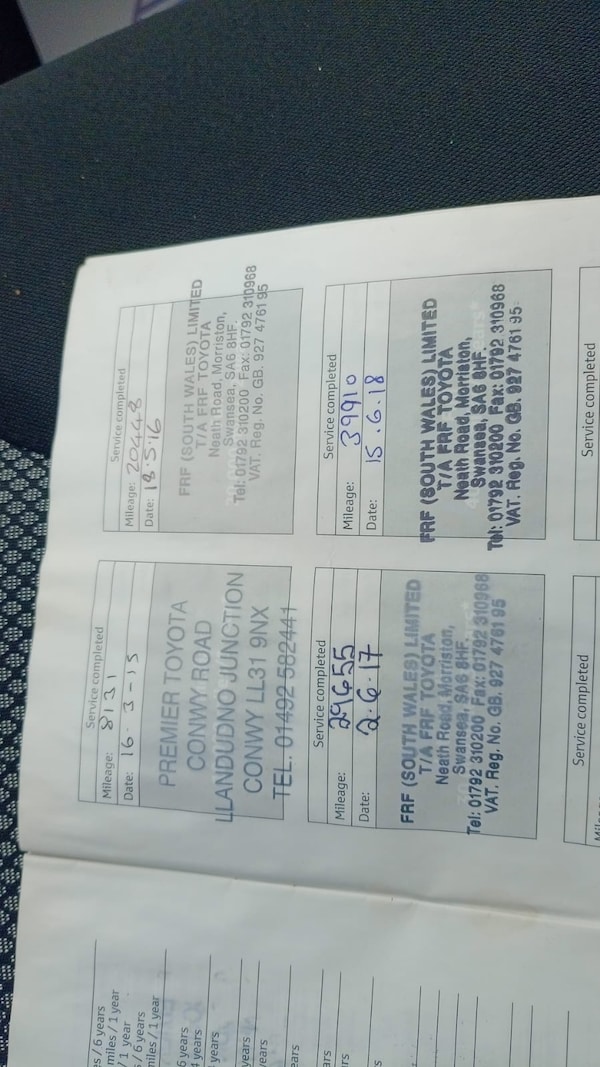 Service completed
Mileage: 8131
Date: 16-3-15
PREMIER TOYOTA
CONWY ROAD
LLANDUDNO JUNCTION
CONWY LL31 9NX
TEL. 01492 582441
Service completed
Mileage: 20448
Date: 18.5.16
FRF (SOUTH WALES) LIMITED
T/A FRF TOYOTA
Neath Road, Morriston,
Swansea, SA6 8HF.
Tel: 01792 310200 Fax: 01792 310968
VAT. Reg. No. GB. 927 4761 95
Service completed
Mileage: 29655
Date: 2.6.17
FRF (SOUTH WALES) LIMITED
T/A FRF TOYOTA
Neath Road, Morriston,
Swansea, SA6 8HF.
Tel: 01792 310200 Fax: 01792 310968
VAT. Reg. No. GB. 927 4761 95
Service completed
Mileage: 39910
Date: 15.6.18
FRF (SOUTH WALES) LIMITED
T/A FRF TOYOTA
Neath Road, Morriston,
Swansea, SA6 8HF.
Tel: 01792 310200 Fax: 01792 310968
VAT. Reg. No. GB. 927 4761 95
Service completed
Service completed
/ 6 years
miles / 1 year
/ 1 year
/ 6 years
miles / 1 year
6 years
years
years
years
years